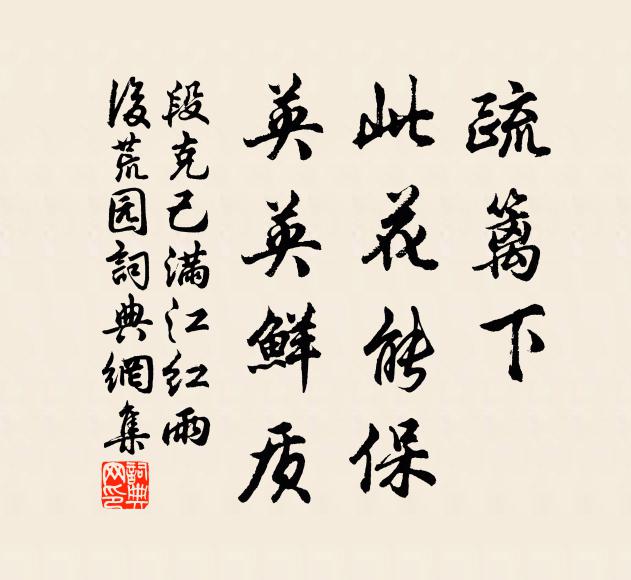 疏篱下
此花能保
英英鲜质
段克己满江红雨
后荒园詞典網集
詞典
网印